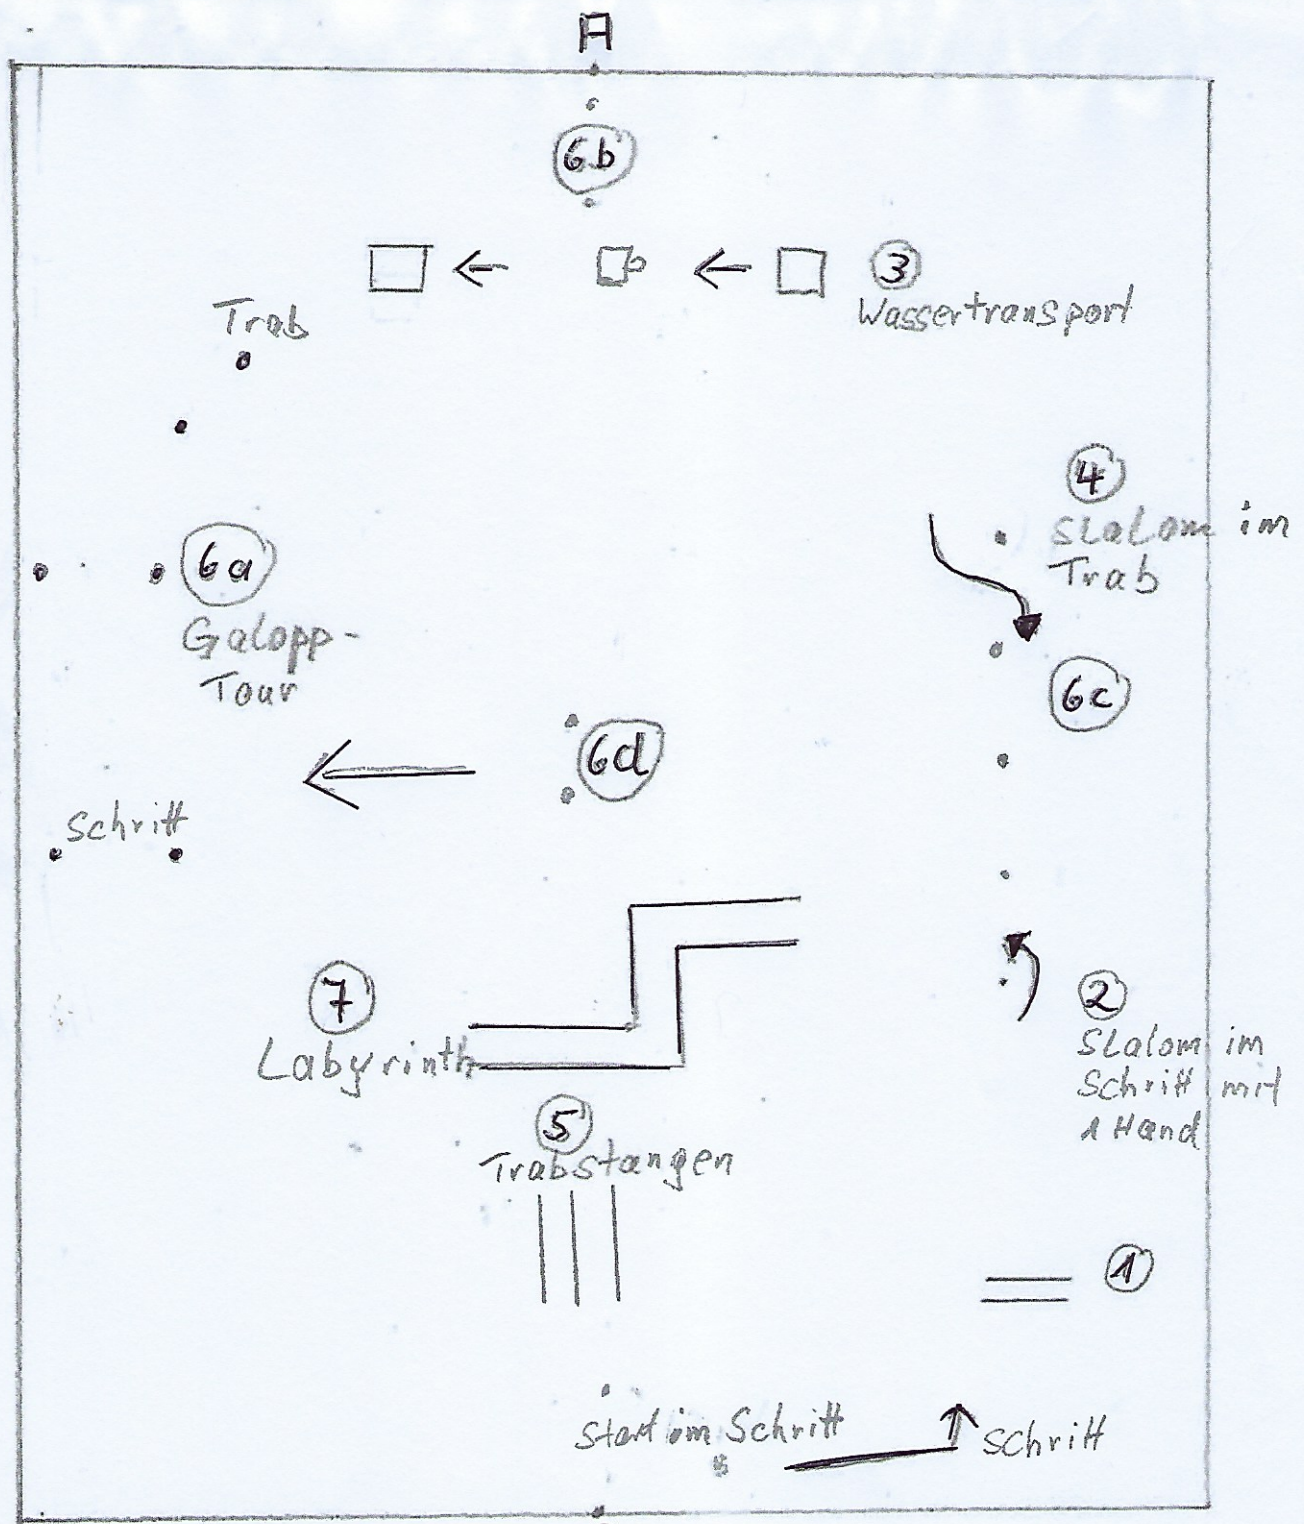 A
6b
3
Wassertransport
Trab
4
Slalom im
Trab
6a
Galopp-
Tour
6c
6d
Schritt
7
Labyrinth
2
Slalom im
Schritt mit
1 Hand
5
Trabstangen
1
Start im Schritt
Schritt